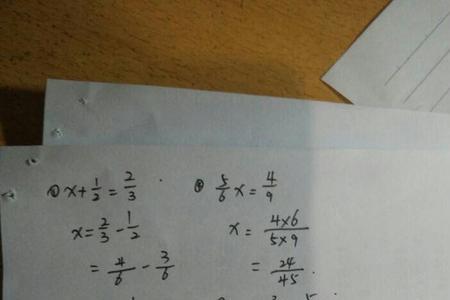 ① x+1/2=2/3
x=2/3-1/2
=4/6-3/6
② 5/6x=4/9
x=4×6/5×9
=24/45.